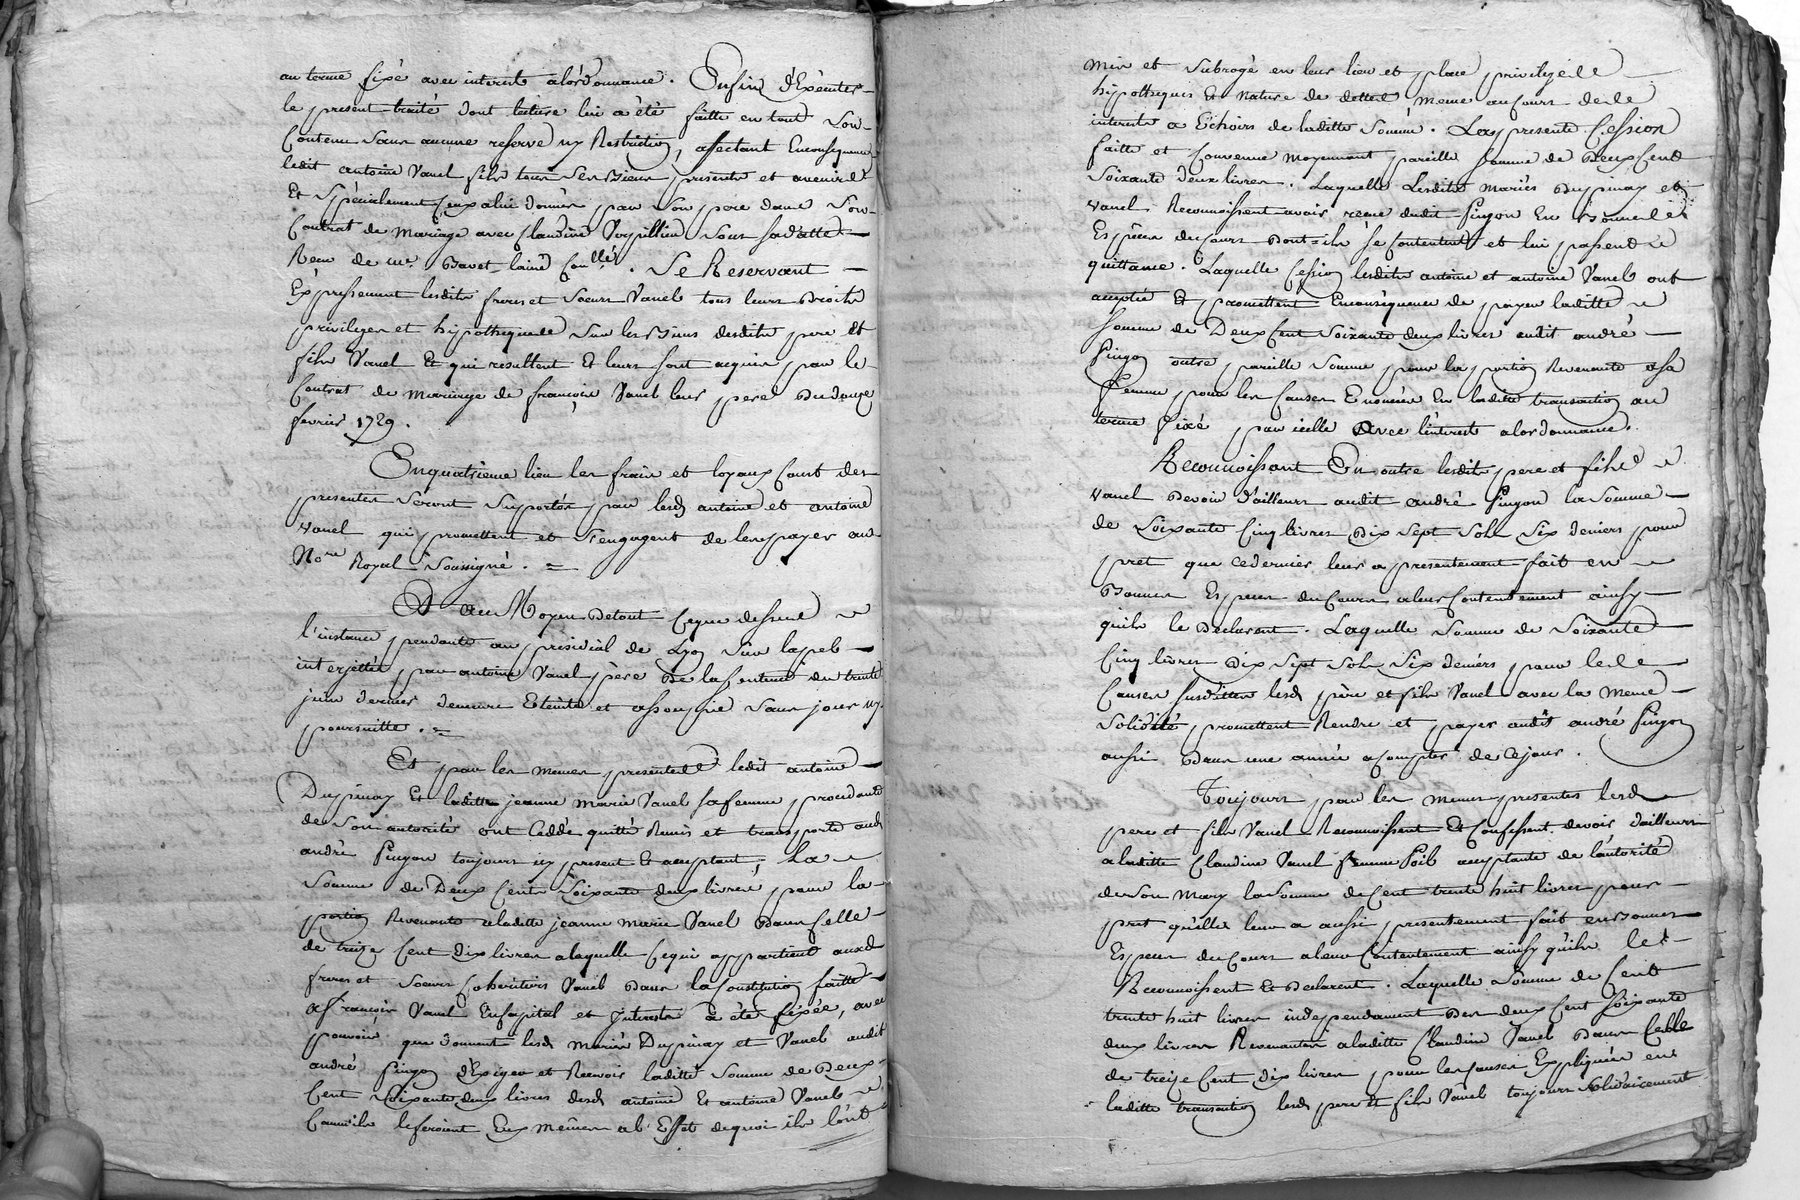 au terme fixé avec interest a lordonnance. Enfin d'Exécuter
le present traité dont lecture lui a été faitte en tout Son
Contenu Sans aucune reserve ny Restriction, affectant Enconsequence
ledit antoine Vanel fils tous Ses Biens presents et avenir
Et Spécialement Ceux alui donnés par Son pere dans Son
Contrat de Mariage avec Claudine Sous Sa datte
Recu de me. lainé . Se Reservant
Expressement lesdits freres et Soeurs Vanel tous leurs Droits
privileges et hipotheques Sur les Biens desdits pere et
fils Vanel Et qui resultent Et leurs Sont acquis par le
Contrat de Mariage de françois Vanel leur pere Du douze
fevrier 1729.
Enquatrieme lieu les frais et loyaux Couts des
presentes Seront Suportés par lesd antoine et antoine
Vanel qui promettent et S'engagent de les payer au
Nore Royal Soussigné. =
Et au Moyen Detout Ceque dessus
l'instance pendante au presidial de Lyon Sur lapel
interjettée par antoine Vanel père De la Sentence du trente
juin dernier demeure Eteinte et assoupie Sans jour ny
poursuitte. =
Et par les memes presentes ledit antoine
Dupinay Et laditte jeanne Marie Vanel Sa femme procedante
de Son autorité ont Ceddé quitté Remis et transporté aud
andré Pinyon toujours icy present Et acceptant, La
Somme de Deux Cents Soixante deux livres pour la
portion Revenante a laditte jeanne Marie Vanel Dans Celle
de treize Cent dix livres a laquelle Ce qui appartient auxd
freres et Soeurs Cohéritiers Vanel Dans la Constitution faitte
a françois Vanel En Capital et Interests a été fixée, avec
pouvoir que Donnent lesd Mariés Dupinay et Vanel audit
andré Pinyon d'Exiger et Recevoir laditte Somme de Deux
Cent Soixante deux livres desd antoine Et antoine Vanel
Comm'ils leferoient Eux Memes a l'Effet dequoi ils l'ont
Mis et Subrogé en leur lieu et place privilege
hypotheques Et Nature de dette Meme au Cours de
interets a Echoir de laditte Somme. La presente Cession
faitte et Convenue Moyennant pareille Somme de Deux Cent
Soixante deux livres. Laquelle Lesdits Mariés Dupinay et
Vanel Reconnoissent avoir receu dudit Pinyon En Bonnes
Especes du Cours Dont ils Se Contentent et lui passent
quittance. Laquelle Cession lesdits antoine et antoine Vanel ont
acceptée Et promettent Enconséquence de payer laditte
Somme de Deux Cent Soixante deux livres audit andré
Pinyon outre pareille Somme pour la portion Revenante a Sa
Femme pour les Causes Enoncées En laditte transaction au
terme Fixé par icelle Avec l'interest a lordonnance.
Reconnoissant En outre lesdits pere et fils
Vanel Devoir d'ailleurs audit andré Pinyon la Somme
de Soixante Cinq livres Dix Sept Sols Six deniers pour
pret que cedernier leur a presentement fait en
Bonnes Especes du Cours a leur Contentement ainsy
quils le Declarent. Laquelle Somme de Soixante
Cinq livres Dix Sept Sols Six deniers pour les
Causes Susdittes lesd père et fils Vanel avec la Meme
Solidité promettent Rendre et payer audit andré Pinyon
aussi Dans une année a Compter de Cejour.
Toujours par les Memes presentes lesd
pere et fils Vanel Reconnoissent Et Confessent devoir d'ailleurs
a laditte Claudine Vanel Femme acceptante de l'autorité
de Son Mary la Somme de Cent trente huit livres pour
pret qu'elle leur a aussi presentement fait en Bonnes
Especes du Cours a leur Contentement ainsy quils le
Reconnoissent Et Declarent. Laquelle Somme de Cent
trente huit livres independament Des deux Cent Soixante
deux livres Revenantes a laditte Claudine Vanel Dans Celle
de treize Cent dix livres pour les Causes Expliquées en
laditte transaction lesd pere Et fils Vanel toujours Solidairement